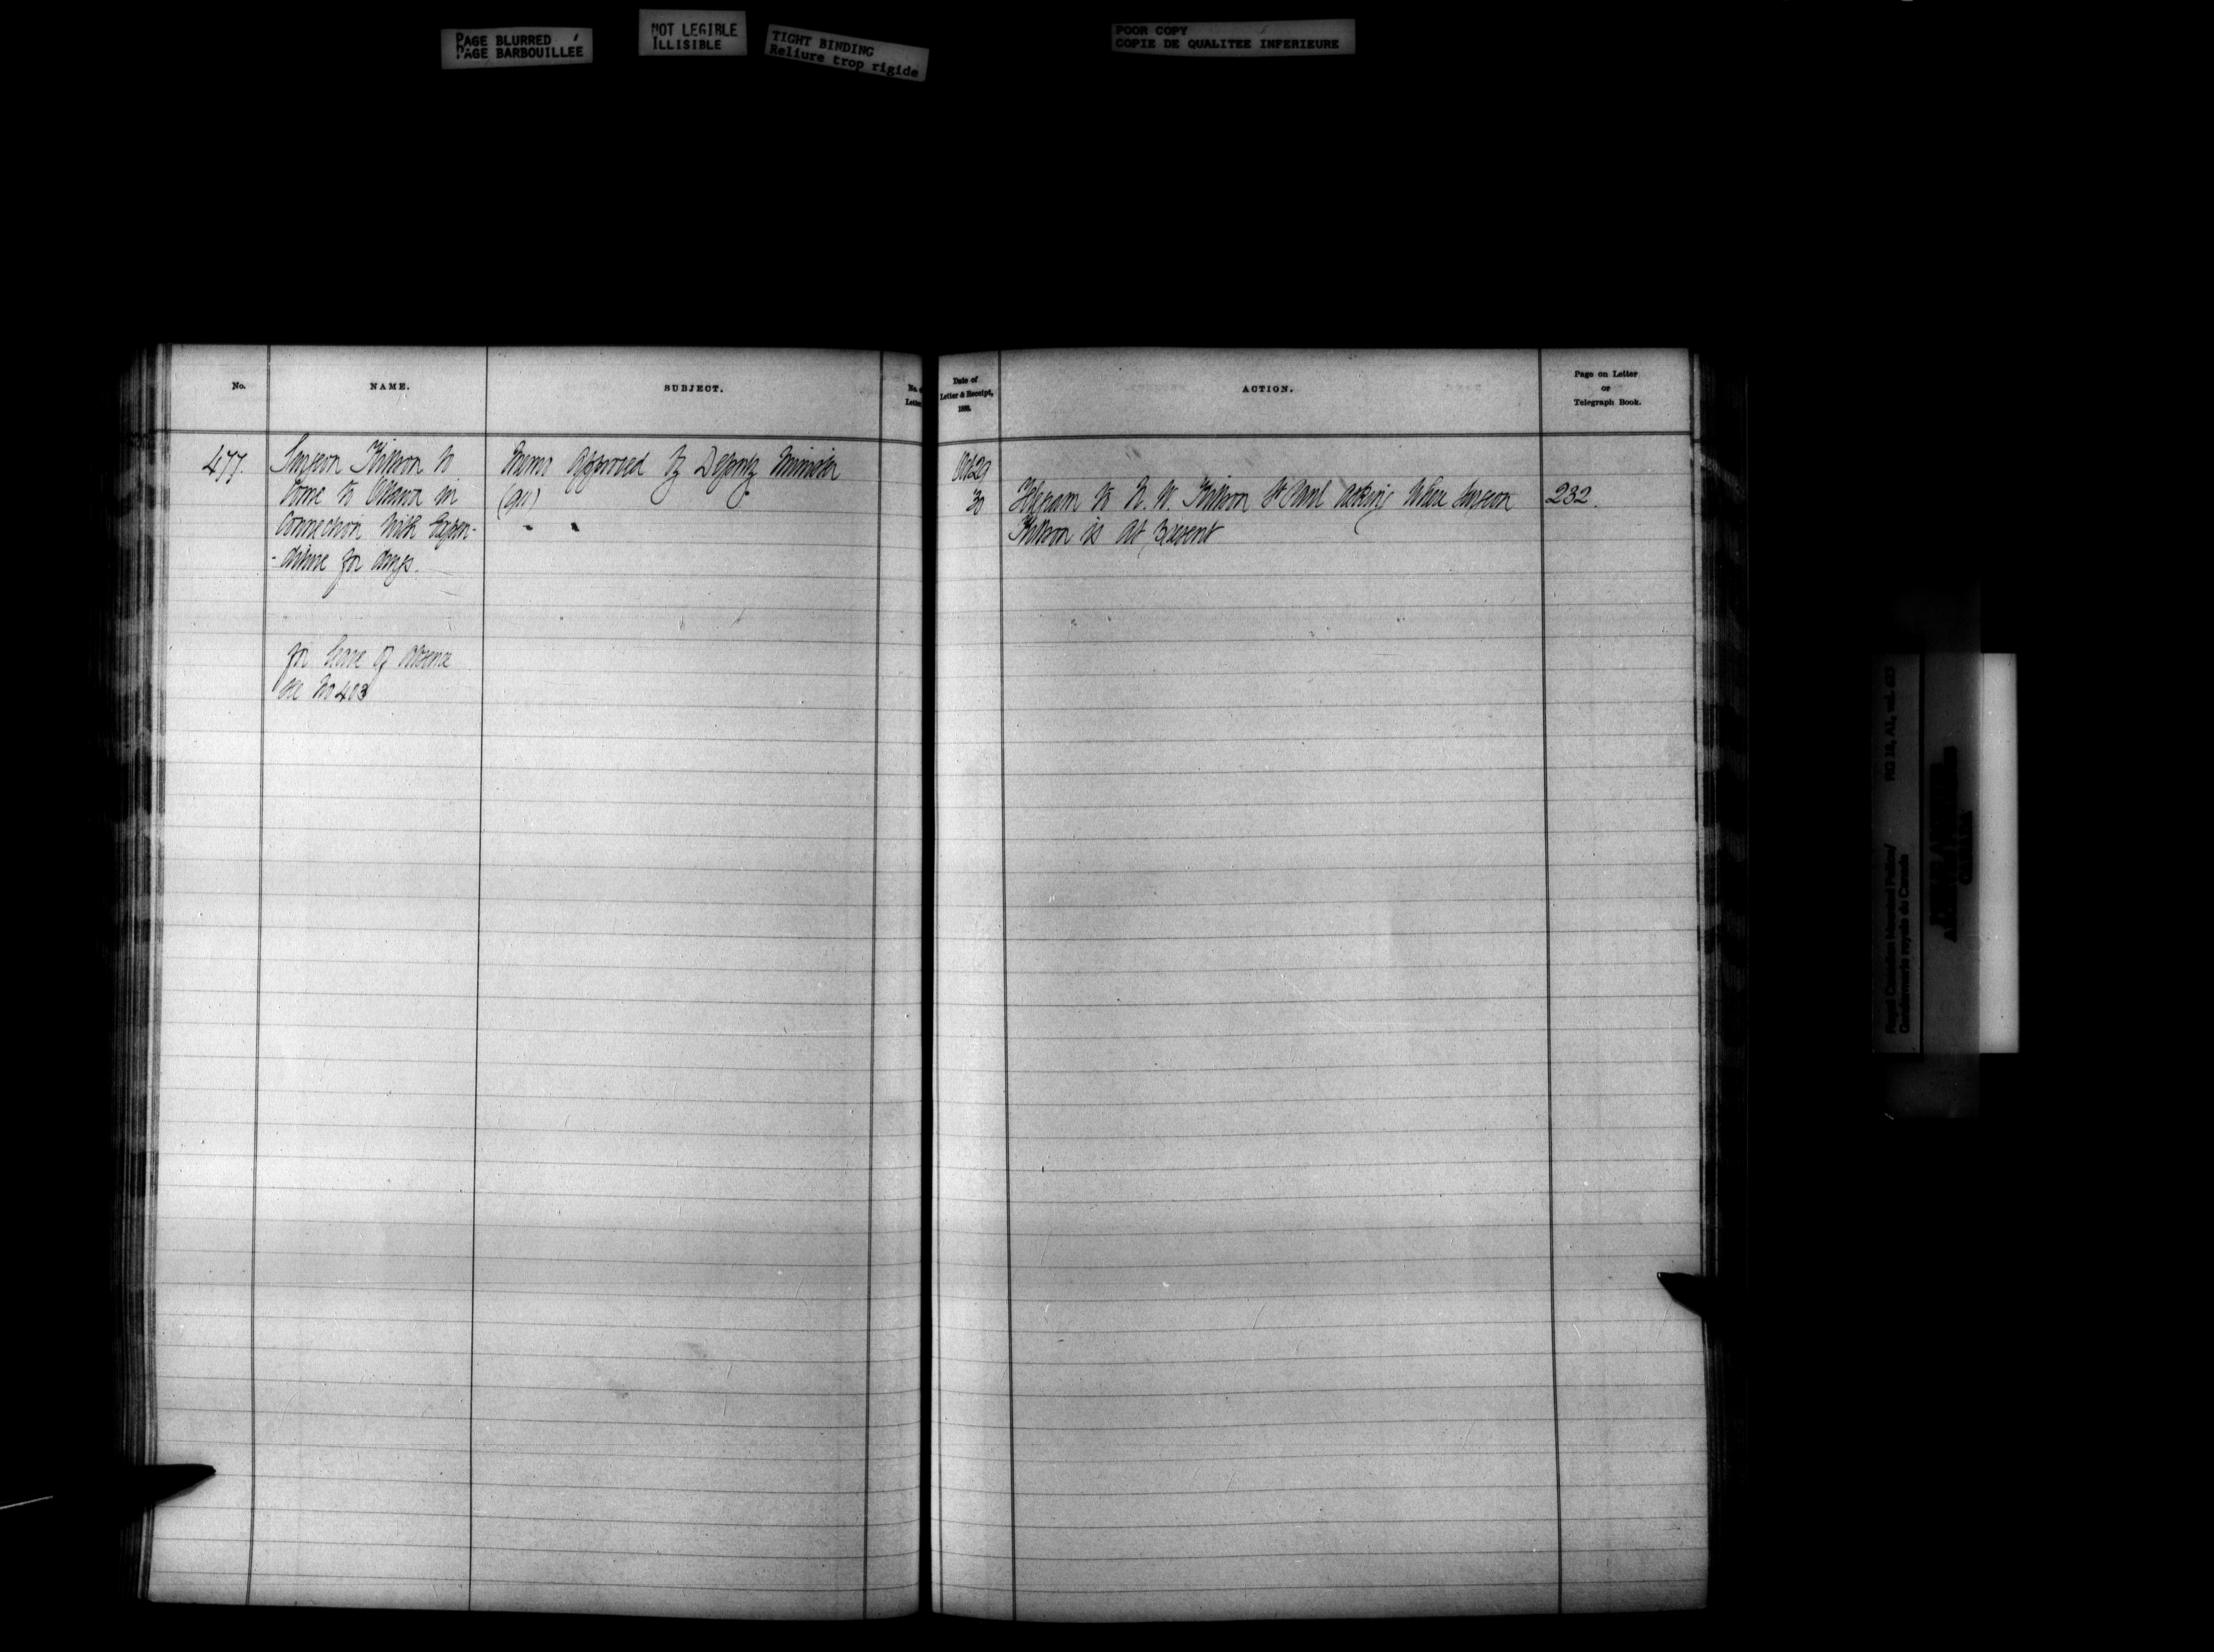 PAGE BLURRED
PAGE BARBOUILLEE
NOT LEGIBLE
ILLISIBLE
TIGHT BINDING
Reliure trop rigide
POOR COPY
COPIE DE QUALITEE INFERIEURE
No.
NAME.
SUBJECT.
No. o
Letter
Date of
Letter & Receipt,
188
ACTION.
Page on Letter
or
Telegraph Book.
477.
Surgeon Kittson to
Come to Ottawa in
Connection with Expen-
-diture for drugs.
for leave of absence
see No 403
Memo approved by Deputy Minister
Oct 29
30
Telegram to N. W. Kittson St Paul asking where Surgeon
Kittson is at present
232.
Royal Canadian Mounted Police/
Gendarmerie royale du Canada
RG 18, A1, vol.